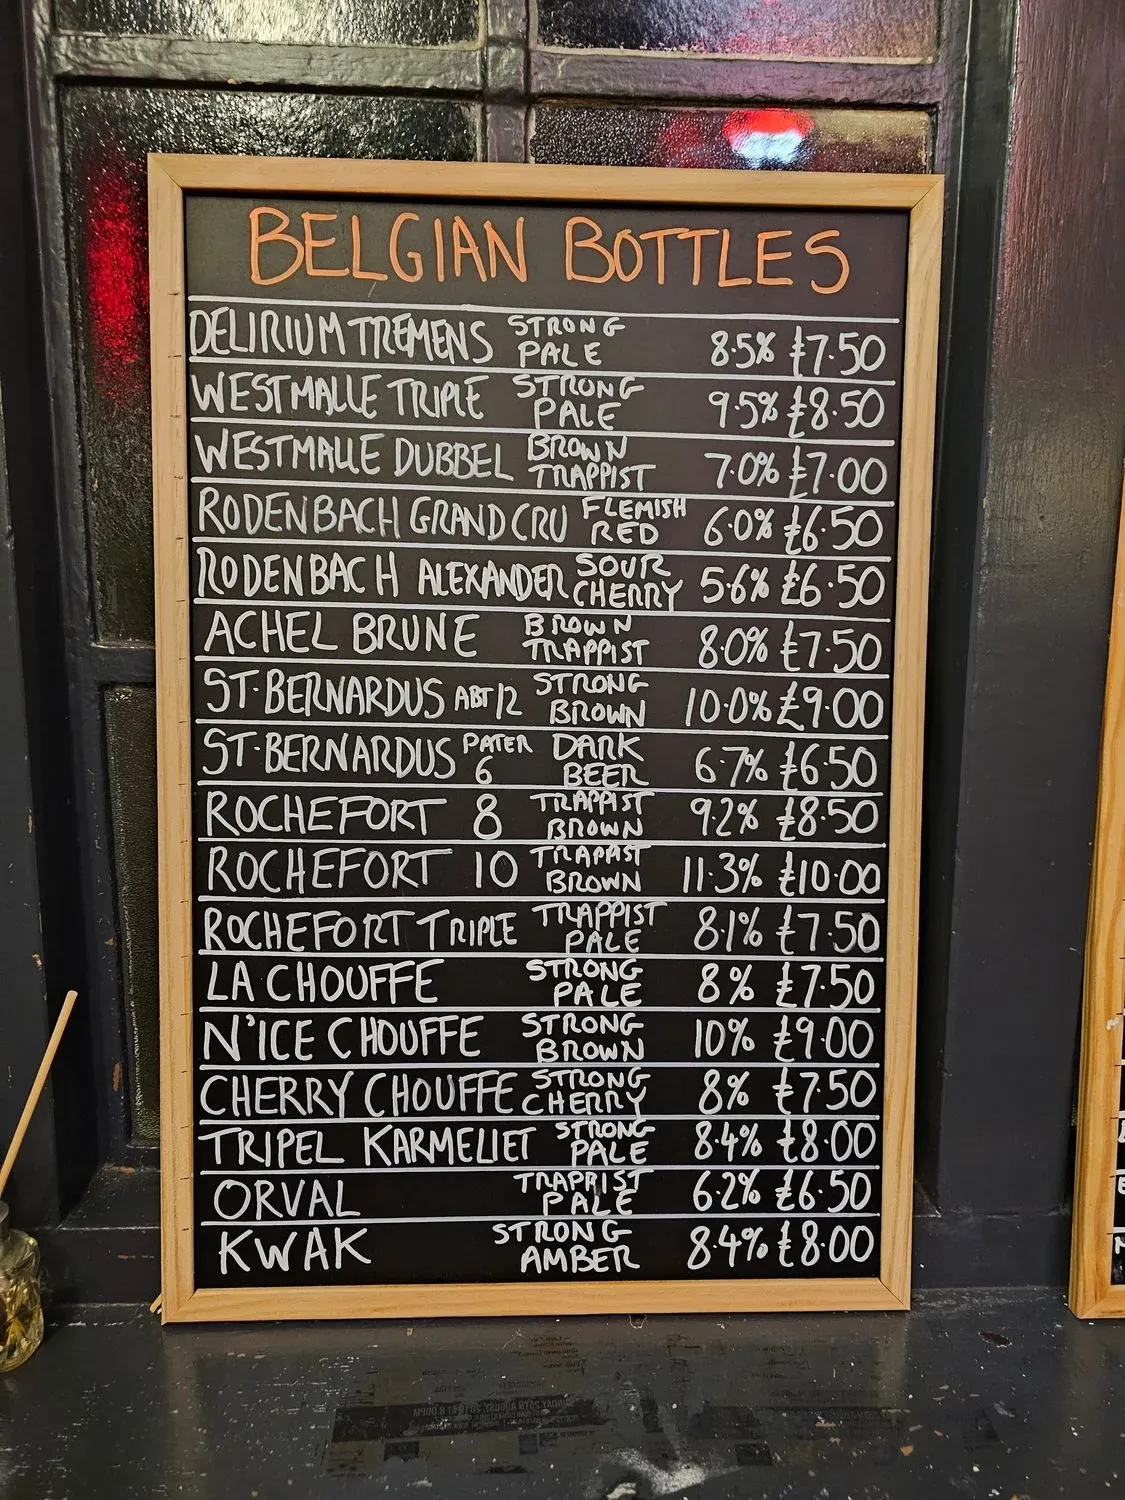 BELGIAN BOTTLES
DELIRIUM TREMENS STRONG PALE 8.5% £7.50
WESTMALLE TRIPLE STRONG PALE 9.5% £8.50
WESTMALLE DUBBEL BROWN TRAPPIST 7.0% £7.00
RODENBACH GRAND CRU FLEMISH RED 6.0% £6.50
RODENBACH ALEXANDER SOUR CHERRY 5.6% £6.50
ACHEL BRUNE BROWN TRAPPIST 8.0% £7.50
ST. BERNARDUS ABT 12 STRONG BROWN 10.0% £9.00
ST. BERNARDUS PATER 6 DARK BEER 6.7% £6.50
ROCHEFORT 8 TRAPPIST BROWN 9.2% £8.50
ROCHEFORT 10 TRAPPIST BROWN 11.3% £10.00
ROCHEFORT TRIPLE TRAPPIST PALE 8.1% £7.50
LA CHOUFFE STRONG PALE 8% £7.50
N'ICE CHOUFFE STRONG BROWN 10% £9.00
CHERRY CHOUFFE STRONG CHERRY 8% £7.50
TRIPEL KARMELIET STRONG PALE 8.4% £8.00
ORVAL TRAPPIST PALE 6.2% £6.50
KWAK STRONG AMBER 8.4% £8.00